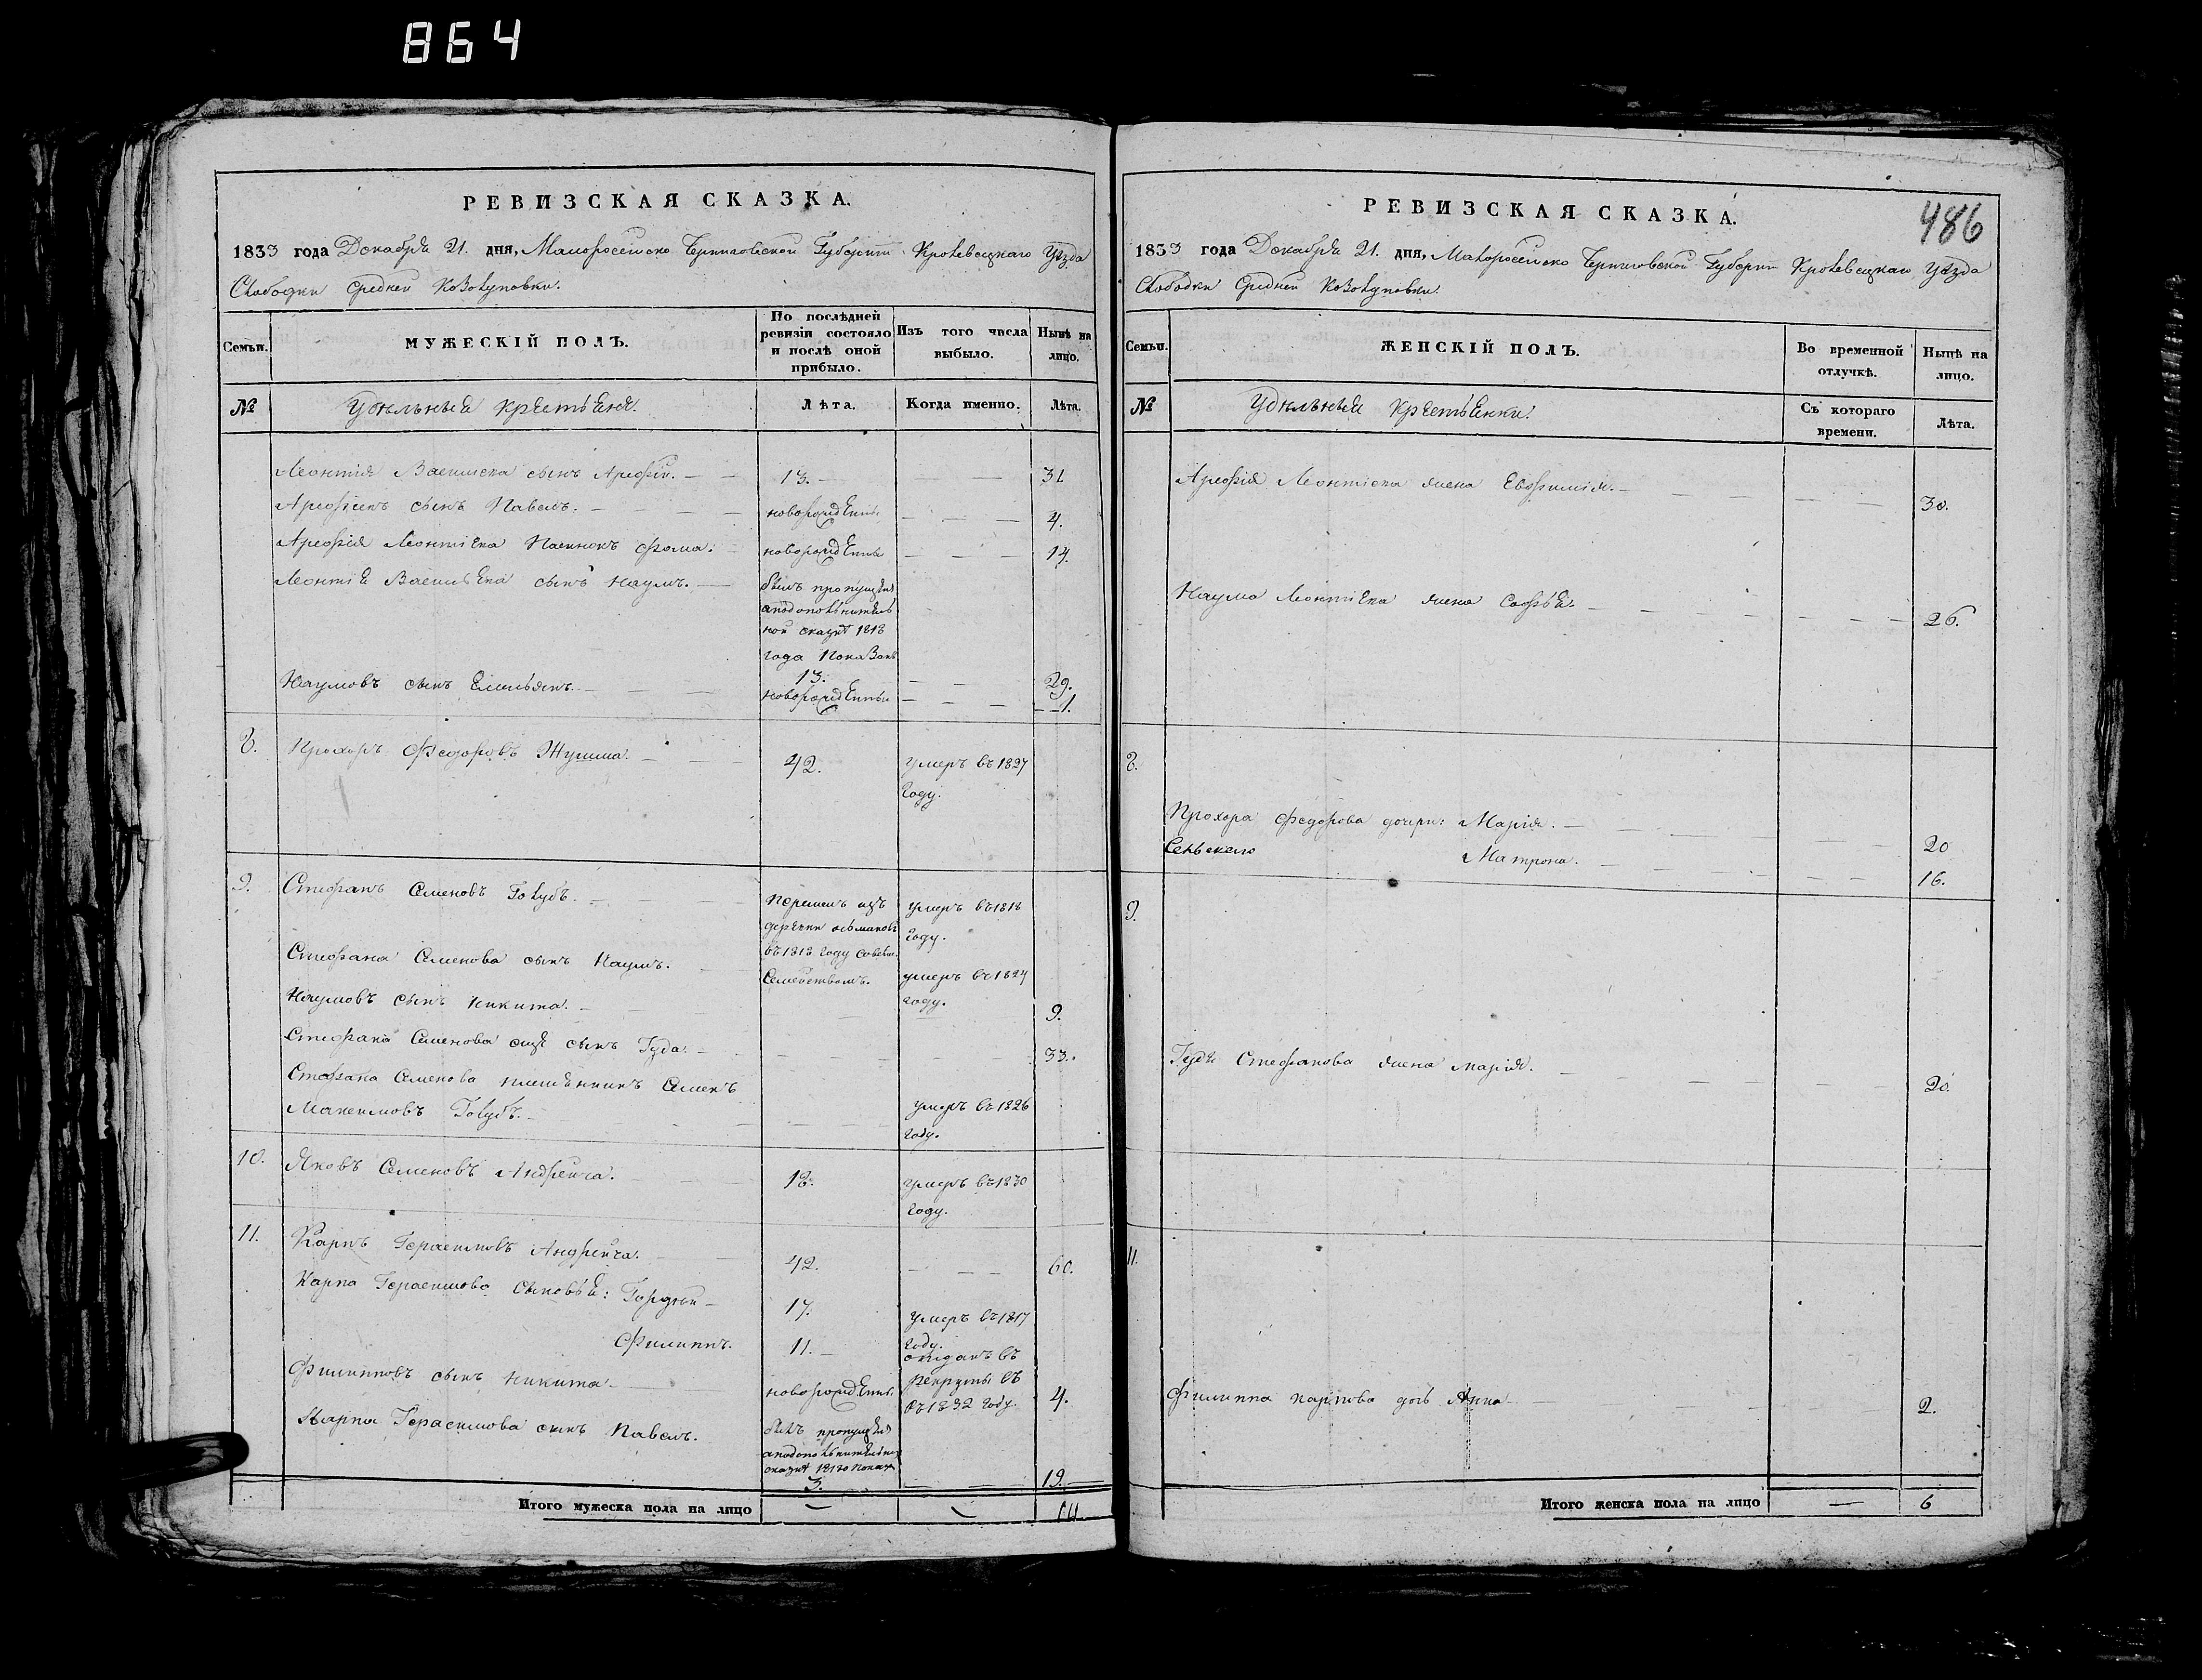 864
РЕВИЗСКАЯ СКАЗКА.
1833 года Декабря 21. дня, Малоросейско Черниговской Губерніи Кролевецкаго Уѣзда
Слободки Средней Козолуповки.
Семьи.
МУЖЕСКІЙ ПОЛЪ.
По послѣдней ревизіи состояло и послѣ оной прибыло.
Изъ того числа выбыло.
Нынѣ на лицо.
№
Удѣльные крестьяня.
Лѣта.
Когда именно.
Лѣта.
Леонтія Васильева сынъ Арефій. 13. 31
Арефіевъ сынъ Павелъ. новорожденны 4.
Арефія Леонтіева Пасынокъ Фома. новорожденны 14.
Леонтіе Васильева сынъ Наумъ. былъ пропущенъ
аподополнитель
ной сказкѣ 1818
года Показанъ
13. 29.
Наумовъ сынъ Емельянъ. новорожденны 1.
8. Прохоръ Федоровъ 42. умеръ въ 1827
году.
9. Стефанъ Семеновъ Голубъ. Перешелъ изъ умеръ въ 1818
деревни году.
въ 1818 году совсѣм
Семействомъ.
Стефана Семенова сынъ Наумъ. умеръ въ 1824
году.
Наумовъ сынъ Никита. 9.
Стефана Семенова още сынъ Гуда. 33.
Стефана Семенова племѣнникъ Семенъ
Максимовъ Голубъ. умеръ въ 1826
году.
10. Яковъ Семеновъ Андрейча. 18. умеръ въ 1830
году.
11. Карпъ Герасимовъ Андрейча. 42. 60.
Карпа Герасимова сыновье: Гордей 17. умеръ въ 1817
году.
Филиппъ. 11. отданъ въ
рекруты въ
въ 1832 году.
Филипповъ сынъ Никита. новорожденны. 4.
Карпа Герасимова сынъ Павелъ. былъ пропущенъ
аподополнительно
сказкѣ 1818го показ
3. 19.
Итого мужеска пола на лицо 14
486
РЕВИЗСКАЯ СКАЗКА.
1833 года Декабря 21. дня, Малоросейско Черниговской Губерніи Кролевецкаго Уѣзда
Слободки Средней Козолуповки.
Семьи.
ЖЕНСКІЙ ПОЛЪ.
Во временной отлучкѣ.
Нынѣ на лицо.
№
Удѣльные крестьянки.
Съ котораго времени.
Лѣта.
Арефія Леонтіева жена Евфимія. 30.
Наума Леонтіева жена Софье. 26.
8.
Прохора Федорова дочери: Марія. 20
Матрона. 16.
9.
Гуды Стефанова жена марія. 20.
11.
Филиппа карпова дочь Анна 2.
Итого женска пола на лицо — 6